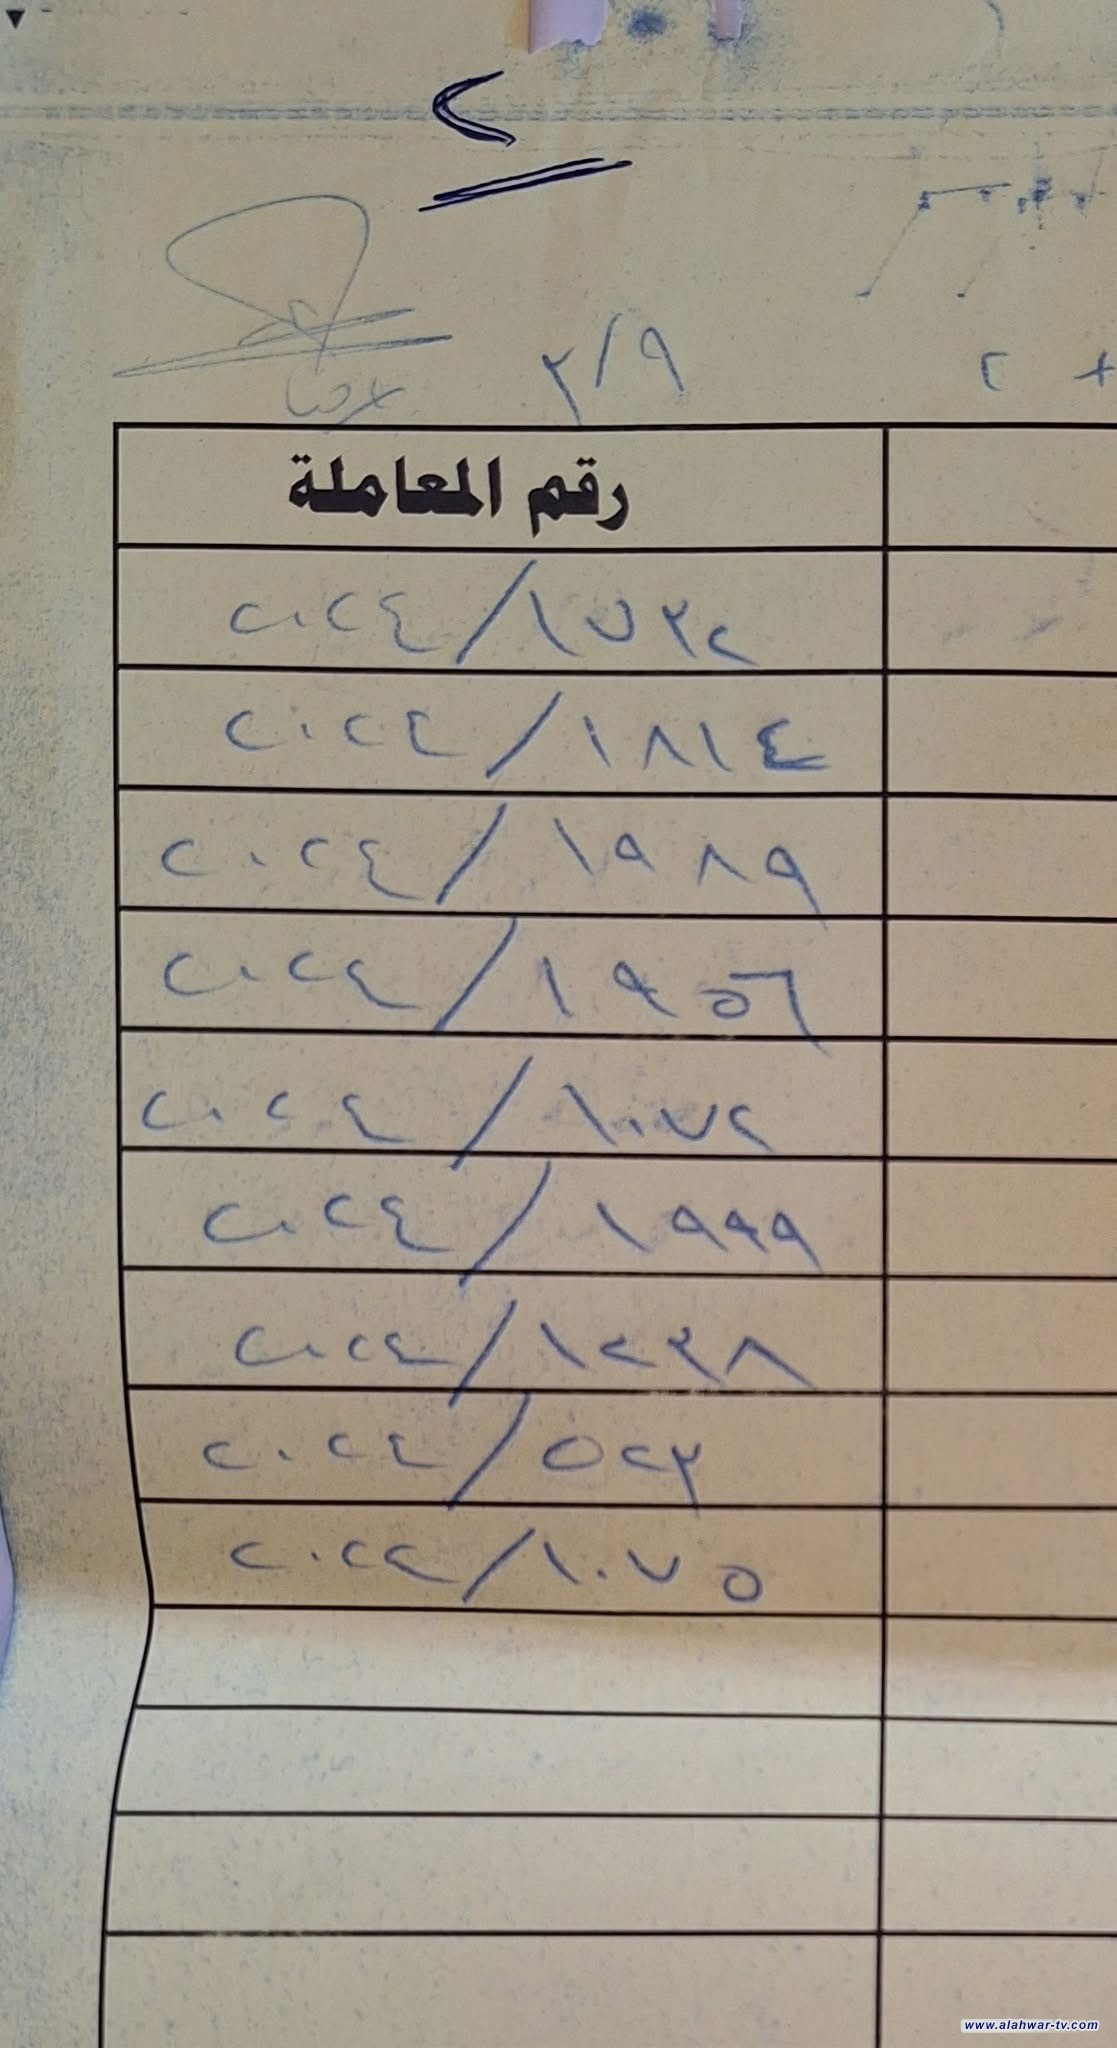 ٢
٣/٩
٢ +
رقم المعاملة
٢٠٢٤/١٥٣٢
٢٠٢٤/١٨١٤
٢٠٢٤/١٩٨٩
٢٠٢٤/١٩٥٦
٢٠٢٤/١٠٧٢
٢٠٢٤/١٩٩٩
٢٠٢٤/١٢٣٨
٢٠٢٤/٥٢٣
٢٠٢٤/١٠٧٥
www.alahwar-tv.com